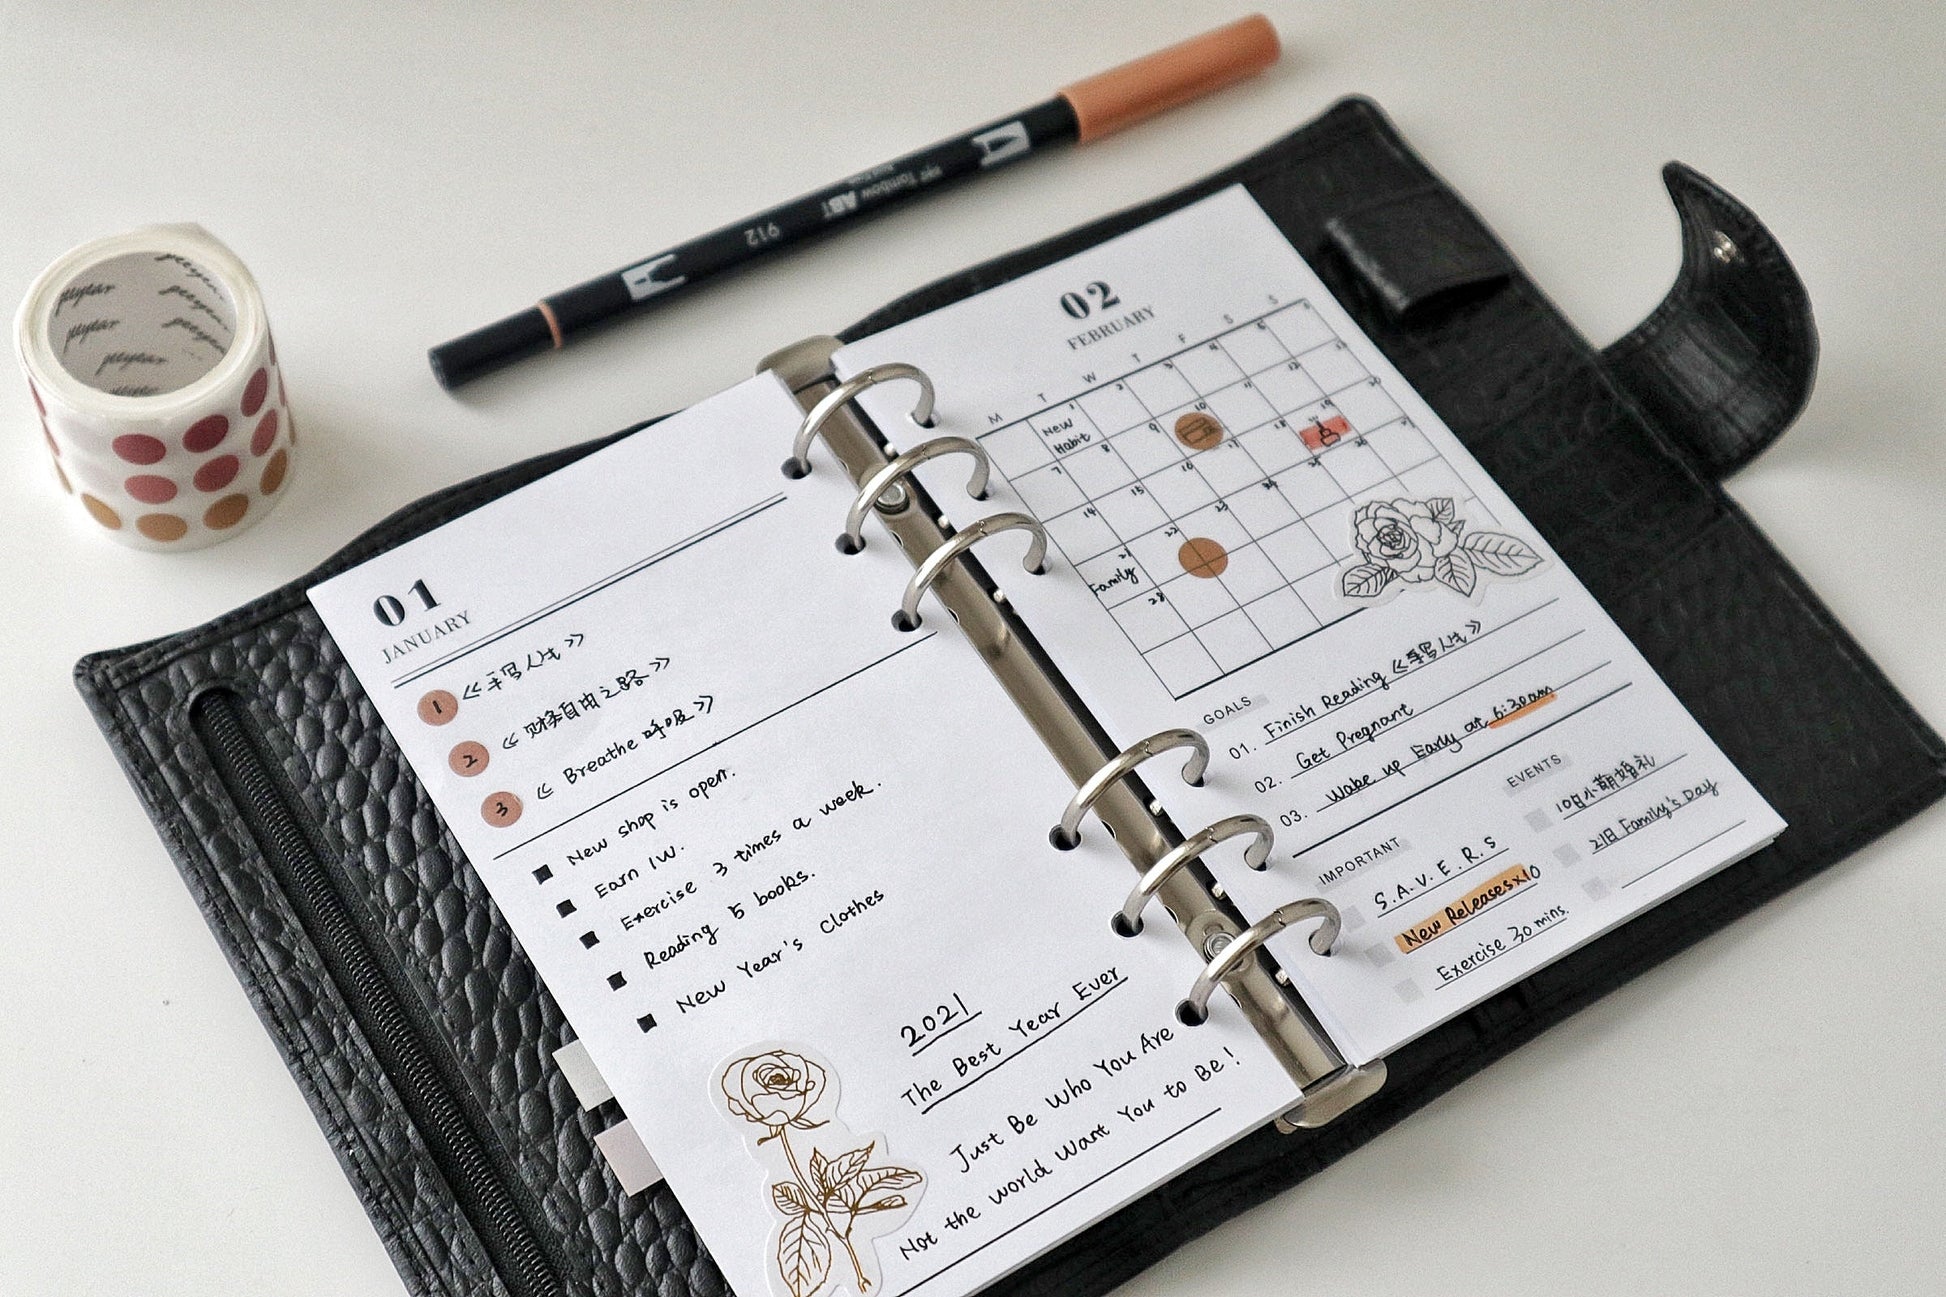 peyear
peyear
peyear
peyear
peyear
912
Tombow ABT
01
JANUARY
1 《手写人生》
2 《财务自由之路》
3 《Breathe 呼吸》
New shop is open.
Earn 1W.
Exercise 3 times a week.
Reading 5 books.
New Year's Clothes
2021
The Best Year Ever
Just Be Who You Are
Not the World Want You to Be!
02
FEBRUARY
M T W T F S S
1 2 3 4 5 6
New
Habit
7 8 9 10 11 12
14 15 16 17 18 19 20
21 22 23 24 25 26 27
Family
28
GOALS
01. Finish Reading 《手写人生》
02. Get Pregnant
03. Wake up Early at 6:30am
IMPORTANT
S.A.V.E.R.S
New Releases x10
Exercise 30 mins.
EVENTS
10日小萌婚礼
21日 Family's Day